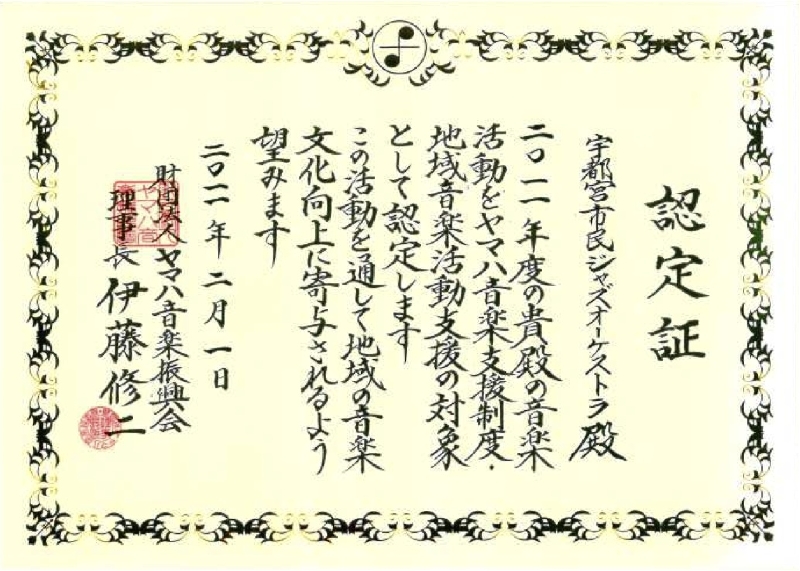 認定証
宇都宮市民ジャズオーケストラ殿
二〇一一年度の貴殿の音楽
活動をヤマハ音楽支援制度・
地域音楽活動支援の対象
として認定します
この活動を通して地域の音楽
文化向上に寄与されるよう
望みます
二〇一一年二月一日
財団法人ヤマハ音楽振興会
理事長 伊藤修二